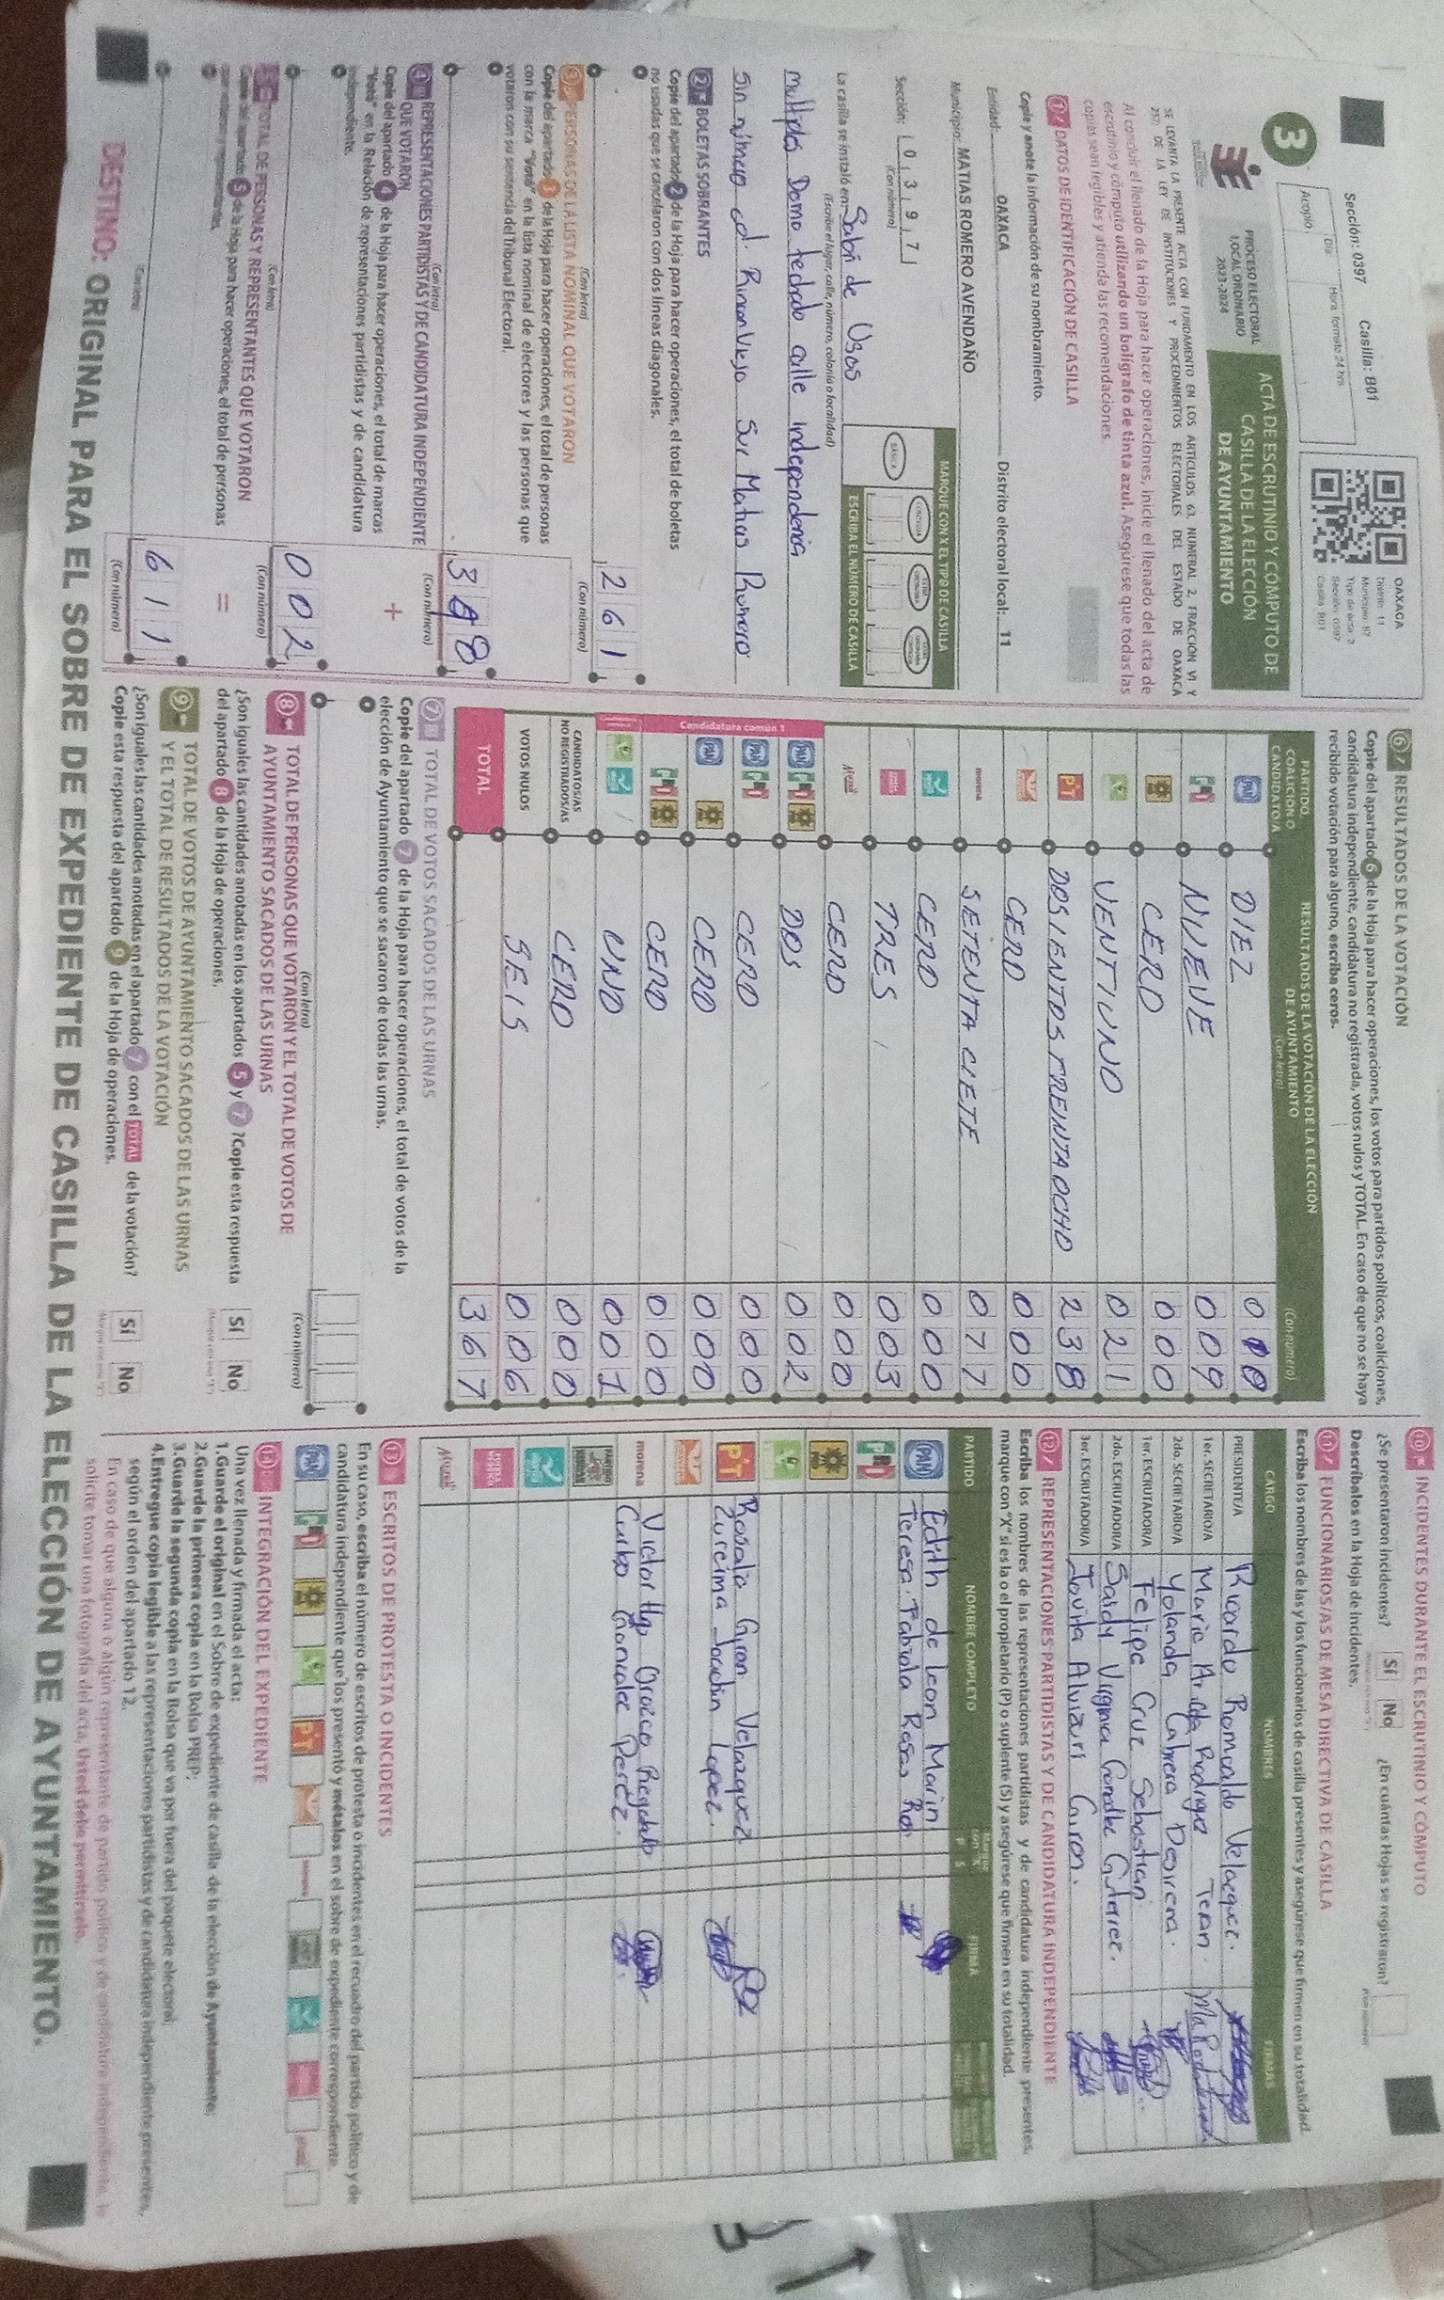 Sección: 0397 Casilla: B01
Día Hora formato 24 hrs
Acopio:
OAXACA
Distrito: 11
Municipio: 57
Tipo de acta: 2
Sección: 0397
Casilla: B01
3
PROCESO ELECTORAL
LOCAL ORDINARIO
2023-2024
ACTA DE ESCRUTINIO Y CÓMPUTO DE
CASILLA DE LA ELECCIÓN
DE AYUNTAMIENTO
SE LEVANTA LA PRESENTE ACTA CON FUNDAMENTO EN LOS ARTÍCULOS 63, NUMERAL 2, FRACCIÓN VI Y
237, DE LA LEY DE INSTITUCIONES Y PROCEDIMIENTOS ELECTORALES DEL ESTADO DE OAXACA
Al concluir el llenado de la Hoja para hacer operaciones, inicie el llenado del acta de
escrutinio y cómputo utilizando un bolígrafo de tinta azul. Asegúrese que todas las
copias sean legibles y atienda las recomendaciones.
1 DATOS DE IDENTIFICACIÓN DE CASILLA
Copie y anote la información de su nombramiento.
Entidad: OAXACA Distrito electoral local: 11
Municipio: MATÍAS ROMERO AVENDAÑO
Sección: 0 3 9 7
(Con número)
MARQUE CON X EL TIPO DE CASILLA
BÁSICA
ESCRIBA EL NÚMERO DE CASILLA
La casilla se instaló en: Salón de Usos
(Escribe el lugar, calle, número, colonia o localidad)
multiples Domo techado calle independencia
Sin número col. Rincon Viejo Sur Matias Romero
2 BOLETAS SOBRANTES
Copie del apartado 2 de la Hoja para hacer operaciones, el total de boletas
no usadas que se cancelaron con dos líneas diagonales.
2 6 1
(Con letra) (Con número)
3 PERSONAS DE LA LISTA NOMINAL QUE VOTARON
Copie del apartado 3 de la Hoja para hacer operaciones, el total de personas
con la marca "Votó" en la lista nominal de electores y las personas que
votaron con su sentencia del Tribunal Electoral.
(Con letra) (Con número)
4 REPRESENTACIONES PARTIDISTAS Y DE CANDIDATURA INDEPENDIENTE
QUE VOTARON
Copie del apartado 4 de la Hoja para hacer operaciones, el total de marcas
"Votó" en la Relación de representaciones partidistas y de candidatura
independiente.
+
0 0 2
(Con letra) (Con número)
5 TOTAL DE PERSONAS Y REPRESENTANTES QUE VOTARON
Copie del apartado 5 de la Hoja para hacer operaciones, el total de personas
que votaron y representantes.
=
6 1 1
(Con letra) (Con número)
6 RESULTADOS DE LA VOTACIÓN
Copie del apartado 6 de la Hoja para hacer operaciones, los votos para partidos políticos, coaliciones,
candidatura independiente, candidatura no registrada, votos nulos y TOTAL. En caso de que no se haya
recibido votación para alguno, escriba ceros.
PARTIDO, COALICIÓN O CANDIDATO/A
RESULTADOS DE LA VOTACIÓN DE LA ELECCIÓN DE AYUNTAMIENTO
(Con letra) (Con número)
PAN DIEZ
PRI NUEVE 0 0 9
CERO 0 0 0
VENTIUNO 0 2 1
PT DOSIENTOS TREINTA OCHO 2 3 8
CERO 0 0 0
morena SETENTA CIETE 0 7 7
CERO 0 0 0
TRES 0 0 3
CERO 0 0 0
Candidatura común 1
PAN PRI DOS 0 0 2
PAN PRI CERO 0 0 0
PAN CERO 0 0 0
PRI CERO 0 0 0
UNO 0 0 1
CANDIDATOS/AS NO REGISTRADOS/AS CERO 0 0 0
VOTOS NULOS SEIS 0 0 6
TOTAL 3 6 7
7 TOTAL DE VOTOS SACADOS DE LAS URNAS
Copie del apartado 7 de la Hoja para hacer operaciones, el total de votos de la
elección de Ayuntamiento que se sacaron de todas las urnas.
(Con letra) (Con número)
8 TOTAL DE PERSONAS QUE VOTARON Y EL TOTAL DE VOTOS DE
AYUNTAMIENTO SACADOS DE LAS URNAS
¿Son iguales las cantidades anotadas en los apartados 5 y 7? Copie esta respuesta
del apartado 8 de la Hoja de operaciones.
Sí No
9 TOTAL DE VOTOS DE AYUNTAMIENTO SACADOS DE LAS URNAS
Y EL TOTAL DE RESULTADOS DE LA VOTACIÓN
¿Son iguales las cantidades anotadas en el apartado 7 con el TOTAL de la votación?
Copie esta respuesta del apartado 9 de la Hoja de operaciones.
Sí No
10 INCIDENTES DURANTE EL ESCRUTINIO Y CÓMPUTO
¿Se presentaron incidentes? Sí No ¿En cuántas Hojas se registraron?
Descríbalos en la Hoja de incidentes.
11 FUNCIONARIOS/AS DE MESA DIRECTIVA DE CASILLA
Escriba los nombres de las y los funcionarios de casilla presentes y asegúrese que firmen en su totalidad.
CARGO NOMBRES FIRMAS
PRESIDENTE/A Ricardo Romualdo Velazquez.
1er. SECRETARIO/A Maria Rodrigez Teran.
2do. SECRETARIO/A Yolanda Cabrera
1er. ESCRUTADOR/A Felipe Cruz Sebastian
2do. ESCRUTADOR/A Saidy Virginia Gutierrez.
3er. ESCRUTADOR/A Jovita Giron.
12 REPRESENTACIONES PARTIDISTAS Y DE CANDIDATURA INDEPENDIENTE
Escriba los nombres de las representaciones partidistas y de candidatura independiente presentes,
marque con "X" si es la o el propietario (P) o suplente (S) y asegúrese que firmen en su totalidad.
PARTIDO NOMBRE COMPLETO P S FIRMA
PAN Edith de leon Marin
PRI Teresa Fabiola Rosas
PT Rosalia Giron Velazquez
Zureima Joachin Lopez.
morena Victor Hgo Orozco
Gonzalez Perez.
13 ESCRITOS DE PROTESTA O INCIDENTES
En su caso, escriba el número de escritos de protesta o incidentes en el recuadro del partido político y de
candidatura independiente que los presentó y métalos en el sobre de expediente correspondiente.
14 INTEGRACIÓN DEL EXPEDIENTE
Una vez llenada y firmada el acta:
1.Guarde el original en el Sobre de expediente de casilla de la elección de Ayuntamiento;
2.Guarde la primera copia en la Bolsa PREP;
3.Guarde la segunda copia en la Bolsa que va por fuera del paquete electoral;
4.Entregue copia legible a las representaciones partidistas y de candidatura independiente presentes,
según el orden del apartado 12.
En caso de que alguna o algún representante de partido político y de candidatura independiente, le
solicite tomar una fotografía del acta, Usted debe permitírselo.
DESTINO: ORIGINAL PARA EL SOBRE DE EXPEDIENTE DE CASILLA DE LA ELECCIÓN DE AYUNTAMIENTO.